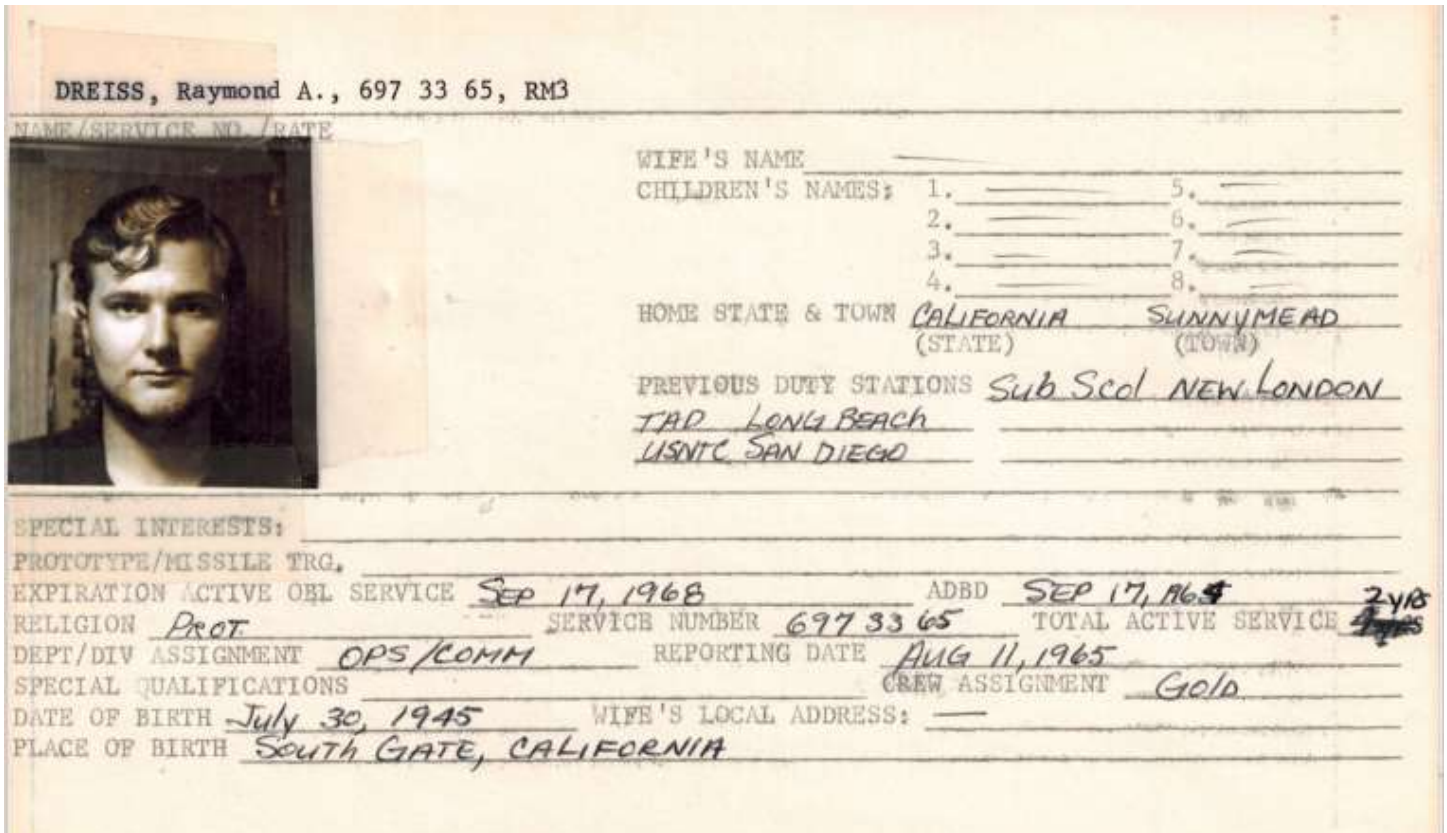 DREISS, Raymond A., 697 33 65, RM3
NAME/SERVICE NO./RATE
WIFE'S NAME
CHILDREN'S NAMES: 1. 5.
2. 6.
3. 7.
4. 8.
HOME STATE & TOWN CALIFORNIA SUNNYMEAD
(STATE) (TOWN)
PREVIOUS DUTY STATIONS Sub Scol NEW LONDON
TAD LONG BEACH
USNTC SAN DIEGO
SPECIAL INTERESTS:
PROTOTYPE/MISSILE TRG.
EXPIRATION ACTIVE OBL SERVICE SEP 17, 1968 ADBD SEP 17, 1964
RELIGION PROT. SERVICE NUMBER 697 33 65 TOTAL ACTIVE SERVICE 2 yrs
DEPT/DIV ASSIGNMENT OPS/COMM REPORTING DATE AUG 11, 1965
SPECIAL QUALIFICATIONS CREW ASSIGNMENT Gold
DATE OF BIRTH July 30, 1945 WIFE'S LOCAL ADDRESS:
PLACE OF BIRTH SOUTH GATE, CALIFORNIA